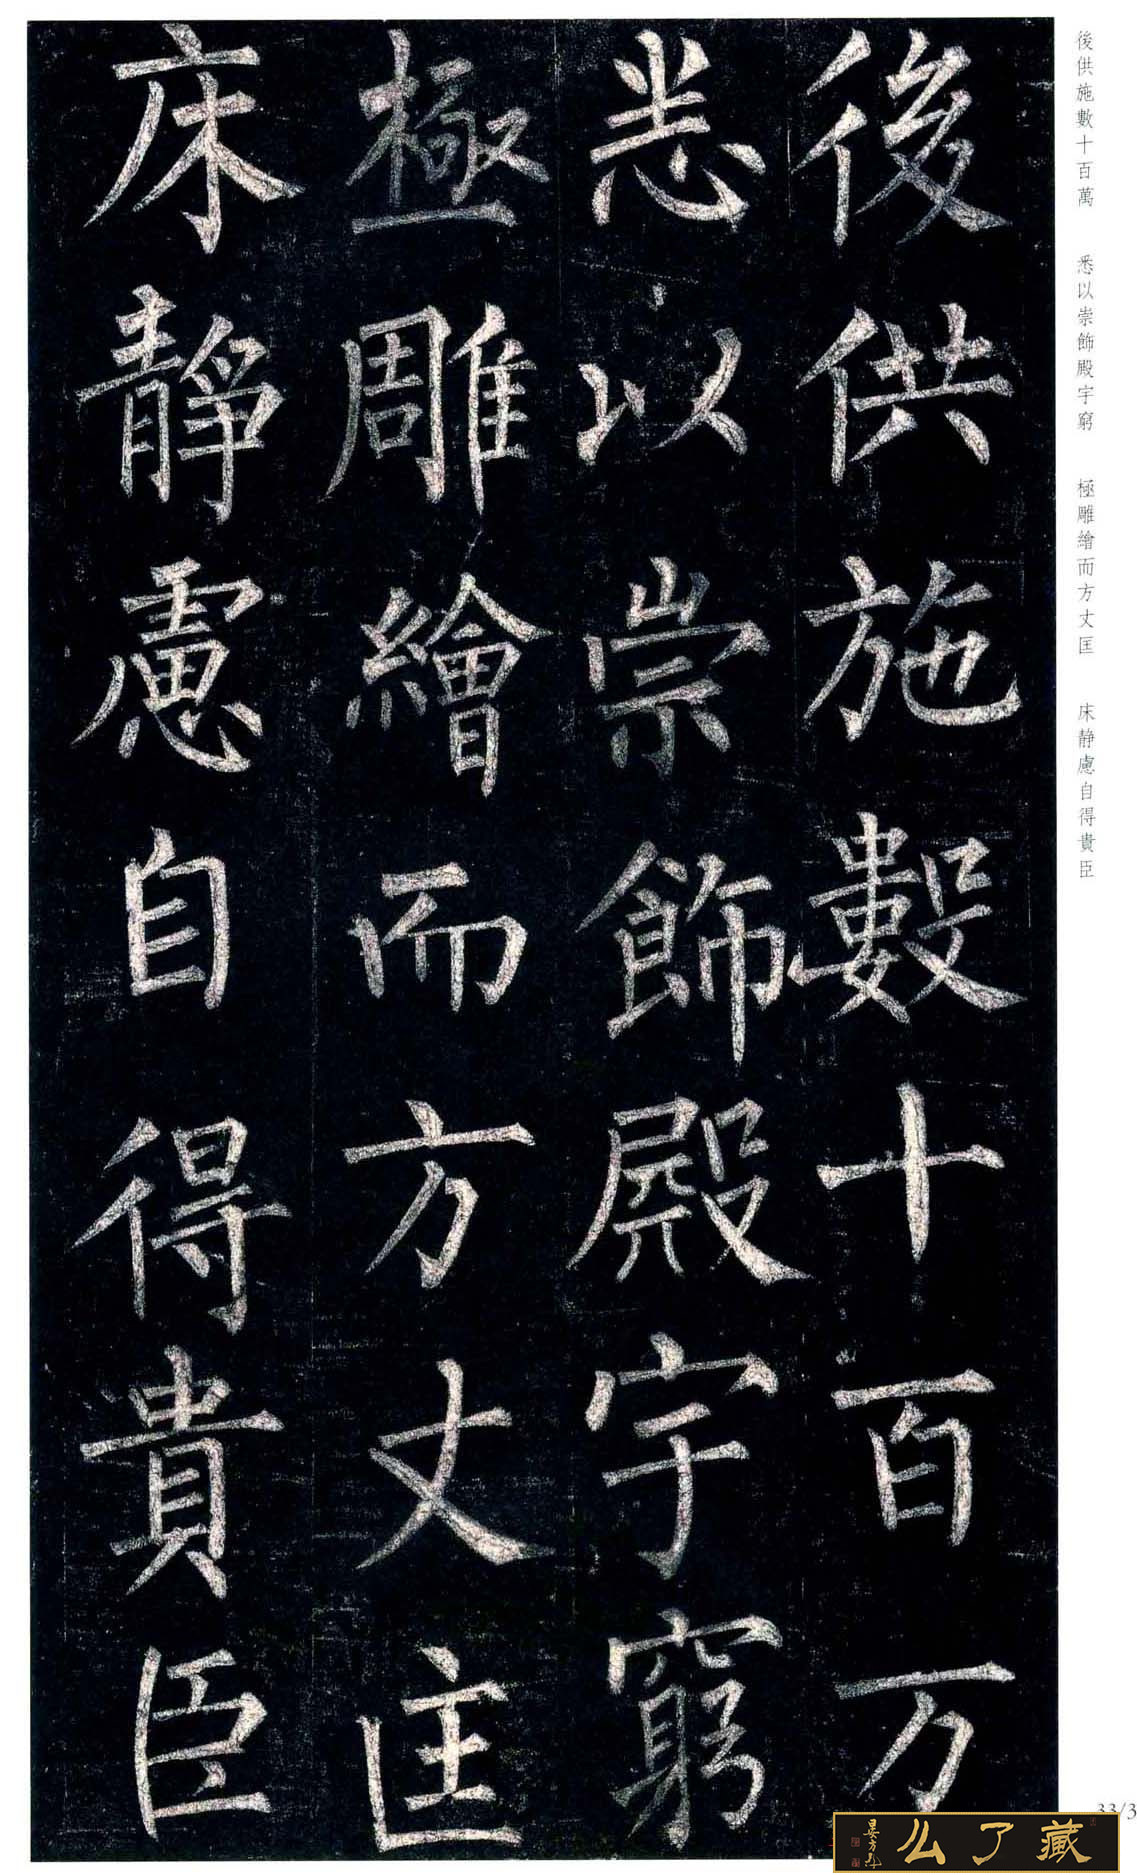 後供施數十百万
悉以崇飾殿宇窮
極雕繪而方丈匡
床靜慮自得貴臣
後供施數十百萬 悉以崇飾殿宇窮 極雕繪而方丈匡 床静慮自得貴臣
33/3
藏了么